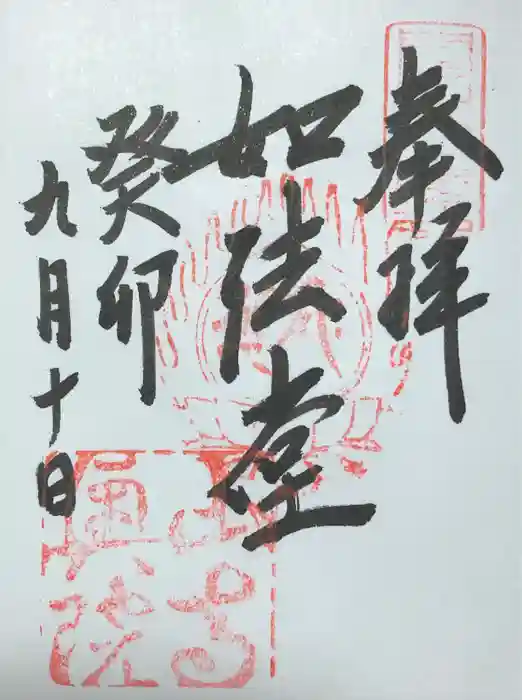 奉拝
如法堂
癸卯
九月十日